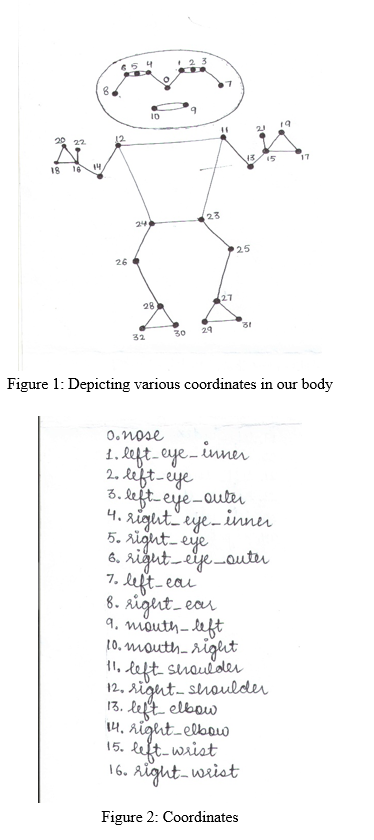 6 5 4 1 2 3
0
8 7
10 9
12 11
20 22 21 19
18 16 14 13 15 17
24 23
26 25
28 27
32 30 29 31
Figure 1: Depicting various coordinates in our body
0. nose
1. left_eye_inner
2. left_eye
3. left_eye_outer
4. right_eye_inner
5. right_eye
6. right_eye_outer
7. left_ear
8. right_ear
9. mouth_left
10. mouth_right
11. left_shoulder
12. right_shoulder
13. left_elbow
14. right_elbow
15. left_wrist
16. right_wrist
Figure 2: Coordinates